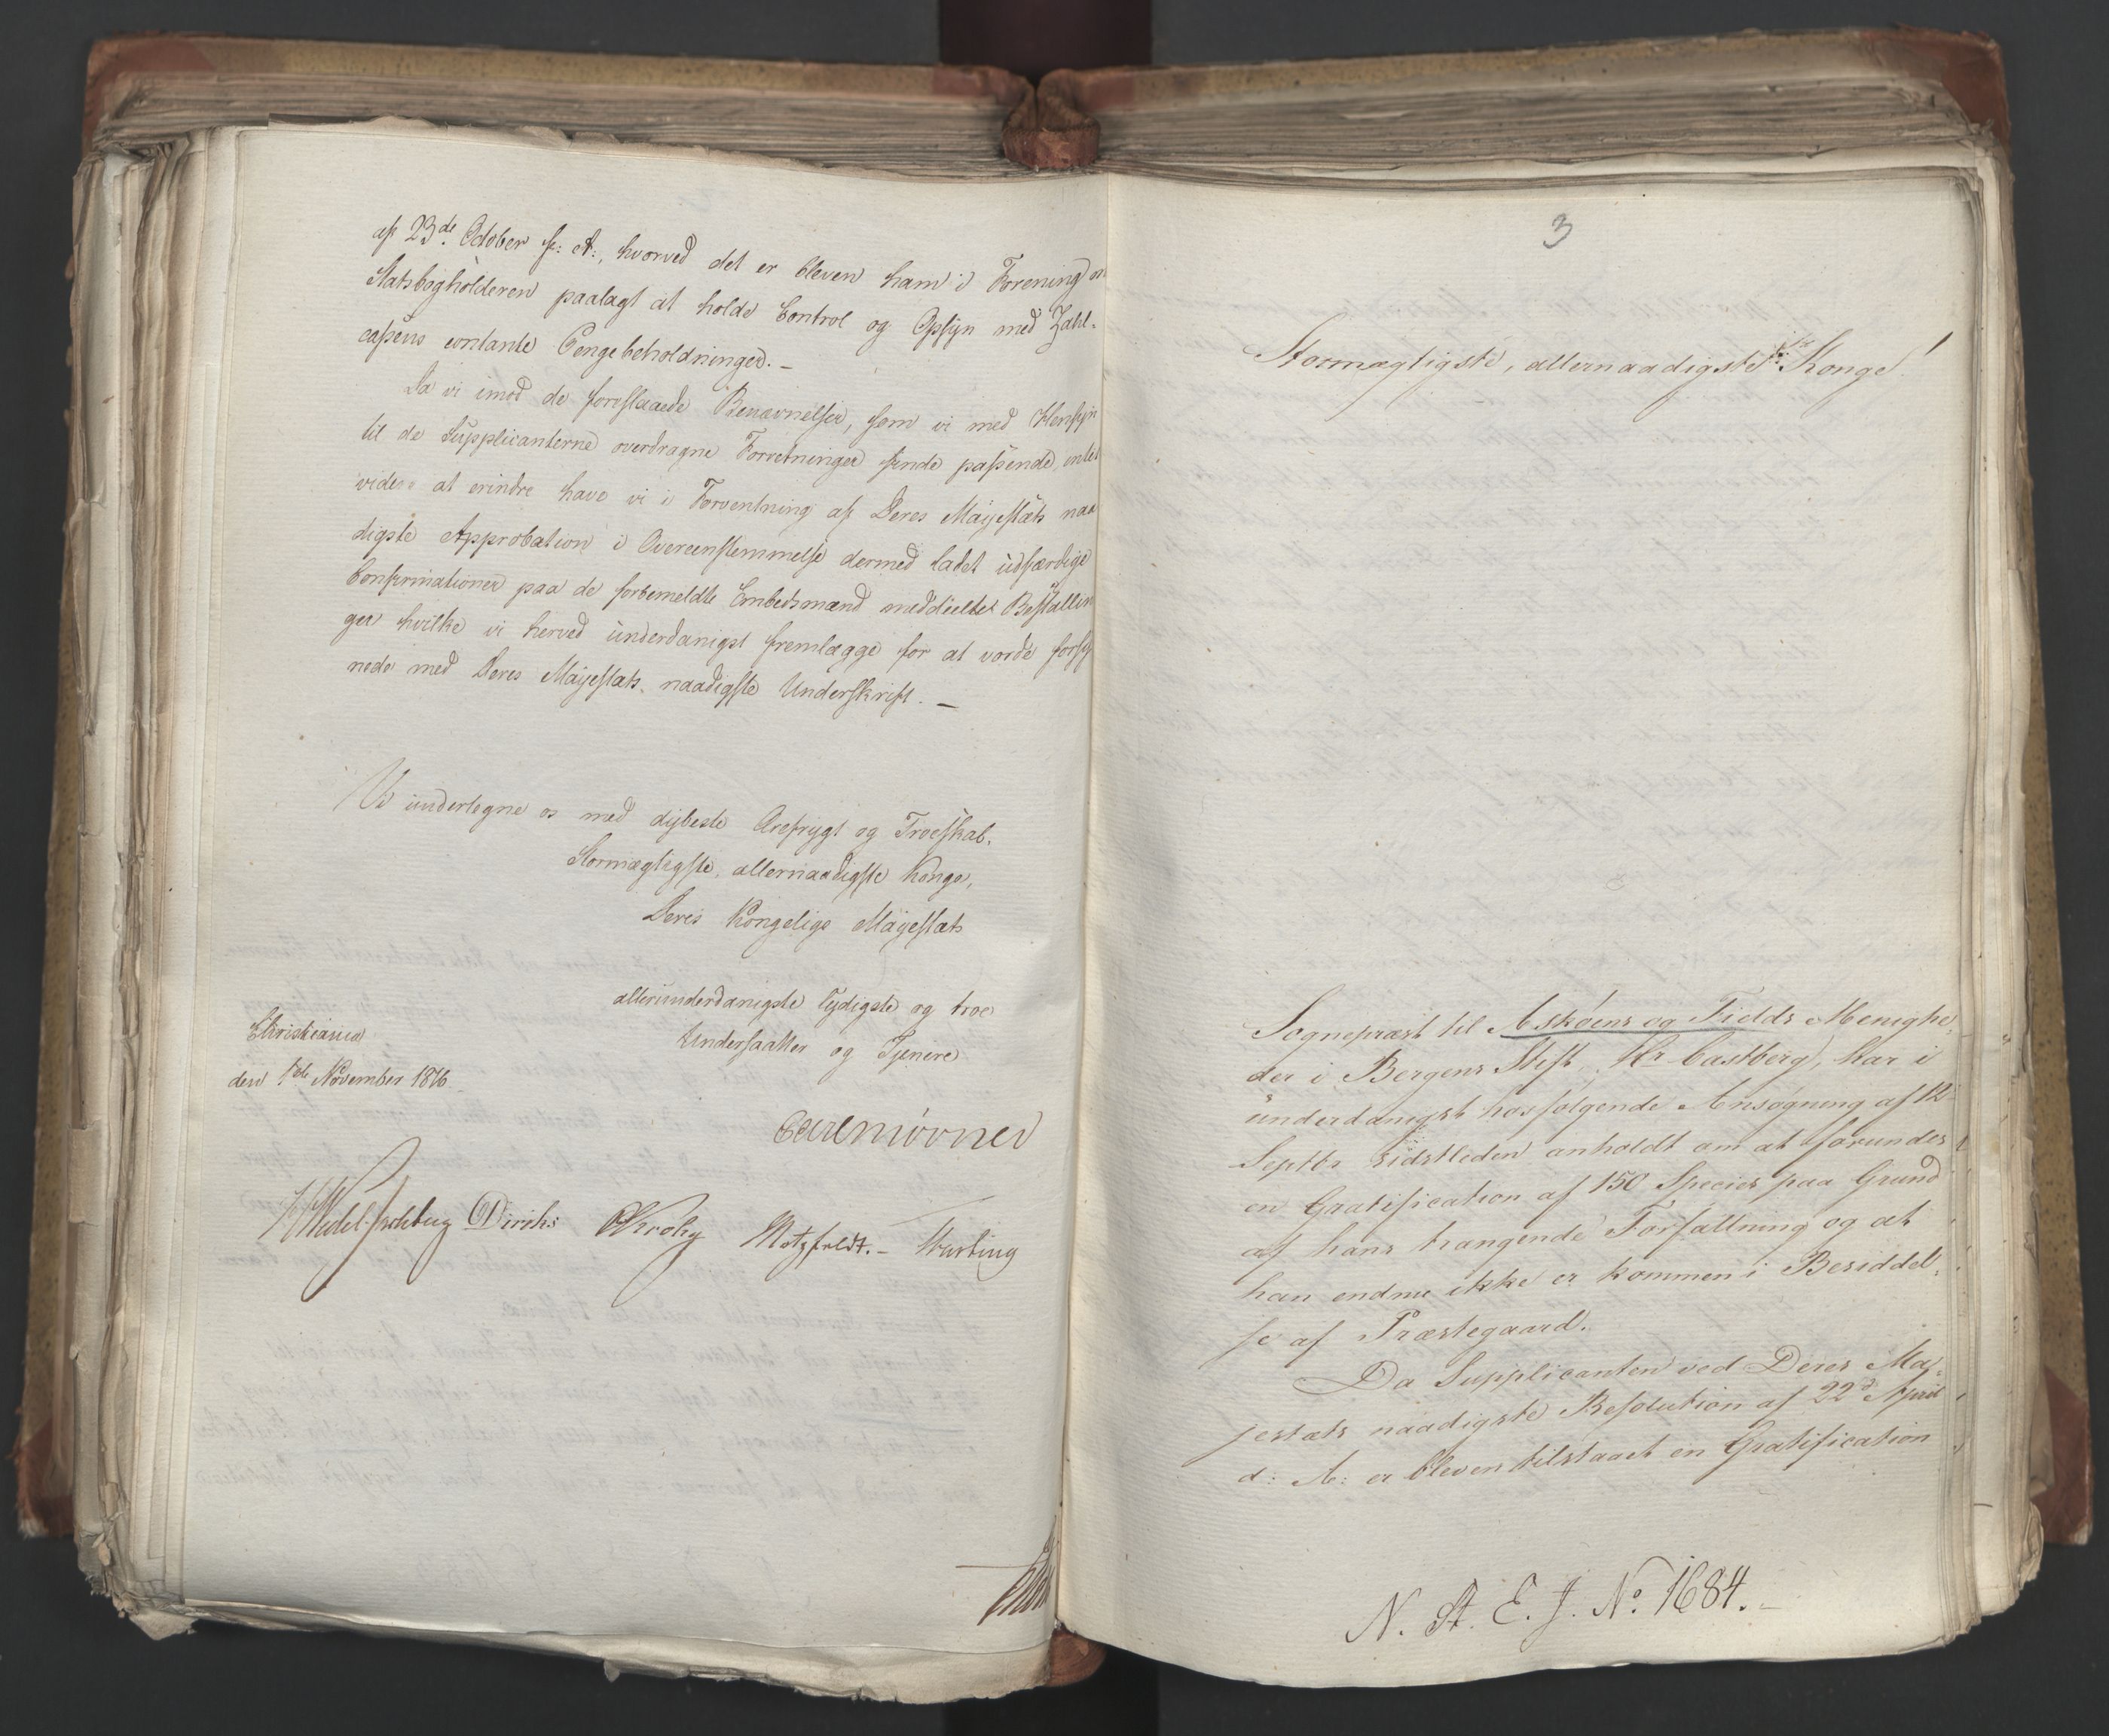 af 23de October f: A:, hvorved det er bleven ham i Forening
Statsbogholderen paalagt at holde Control og Opsyn med Zahl-
cassens contante Pengebeholdninger. —
Da vi imod de foreslaaede Benævnelser, som vi med Hensyn
til de Supplicanterne overdragne Forretninger finde passende, intet
videre at erindre have vi i Forventning af Deres Majestæts naa
digste Approbation i Overeensstemmelse dermed ladet udfærdige
Confirmationer paa de forbemeldte Embedsmænd meddeelte Bestallin
ger hvilke vi herved underdanigst fremlægge for at vorde forsy
nede med Deres Majestæts naadigste Underskrift. —
Vi undertegne os med dybeste Ærefrygt og Troeskab.
Stormægtigste, allernaadigste Konge,
Deres Kongelige Majestæts
allerunderdanigste lydigste og troe
Undersaatter og Tjenere
Christiania
den 1ste November 1816.
Carl Mörner
HWedel-Jarlsberg Diriks Krohg Motzfeldt. —
3
Stormægtigste, allernaadigste Konge!
Sognepræst til Askøens og Fields Menighe-
der i Bergens Stift, Hr Castberg, har i
underdanigst hosfølgende Ansøgning af 12
Septbr sidstleden anholdt om at forundes
en Gratification af 150 Species paa Grund
af hans trangende Forfatning og at
han endnu ikke er kommen i Besiddel-
se af Præstegaard.
Da Supplicanten ved Deres Ma-
jestæts naadigste Resolution af 22d April
d: A: er bleven tilstaaet en Gratification
N. St. E. J. No. 1684. —